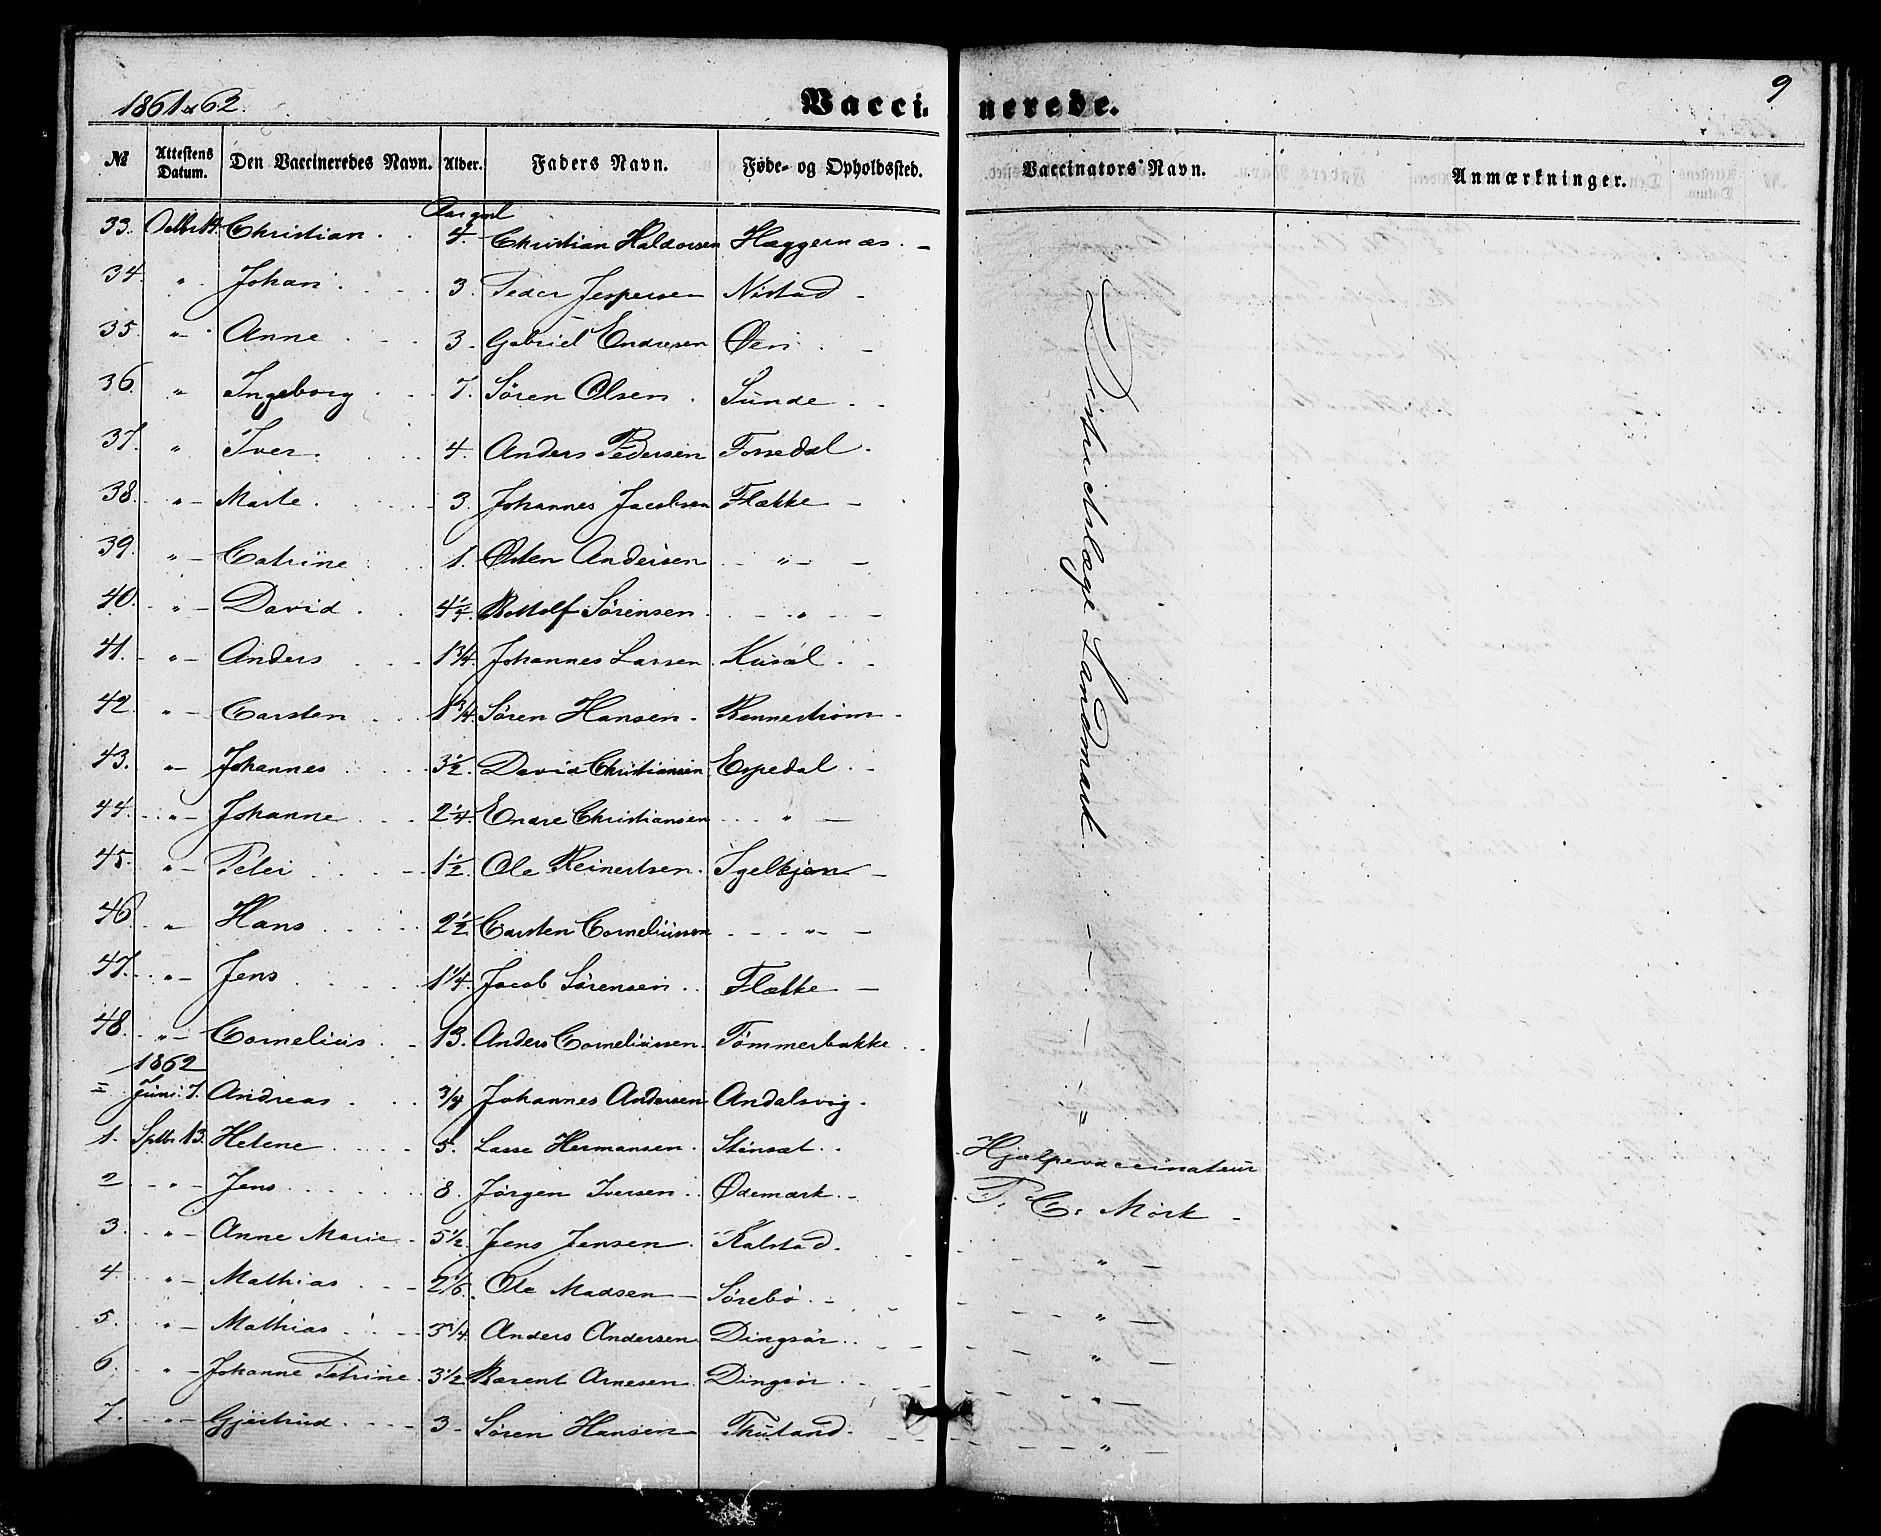 1861 & 62. Vacci- nerede. 9
№ Attestens Datum. Den Vaccineredes Navn. Alder. Faders Navn. Føde- og Opholdssted. Vaccinators Navn. Anmærkninger.
Aar gml
33. Octbr 14. Christian 4. Christian Haldorsen Hæggernæs
34. " Johan 3. Peder Jespersen Nistad
35. " Anne 3. Gabriel Endresen Øen
36. " Ingeborg 7. Søren Olsen Sunde
37. " Iver 4. Anders Pedersen Fossedal
38. " Marte 3. Johannes Jacobsen Flække
39. " Catrine 1. Østen Andersen "
40. " David 4 1/4. Rottolf Sørensen "
41. " Anders 1 3/4. Johannes Larsen
42. " Carsten 1 3/4. Søren Hansen
43. " Johannes 3 1/2. David Christiansen Espedal
44. " Johanne 2 1/4. Endre Christiansen "
45. " Peter 1 1/2. Ole Reinertsen
46. " Hans 2 1/2 Carsten Corneliussen "
47. " Jens 1 1/4. Jacob Sørensen Flække
48. " Cornelius 13. Anders Corneliussen Tømmerbakke
Districtslæge Landmark.
"
1862
= Juni 7. Andreas 3/4 Johannes Andersen Andalsvig
1. Septbr 13. Helene 5. Lasse Hermansen Stensæt Hjælpevaccinateur
2 " Jens 8. Jørgen Iversen Ødemark P. C. Mørk
3. " Anne Marie 5 1/2. Jens Jensen Kalstad "
4. " Mathias 2 1/6. Ole Madsen Sørebø "
5. " Mathias 3 3/4. Anders Andersen Dingsør "
6. " Johanne Petrine 3 1/2 Barent Arnesen Dingsør "
7. " Gjertrud 3 Søren Hansen "